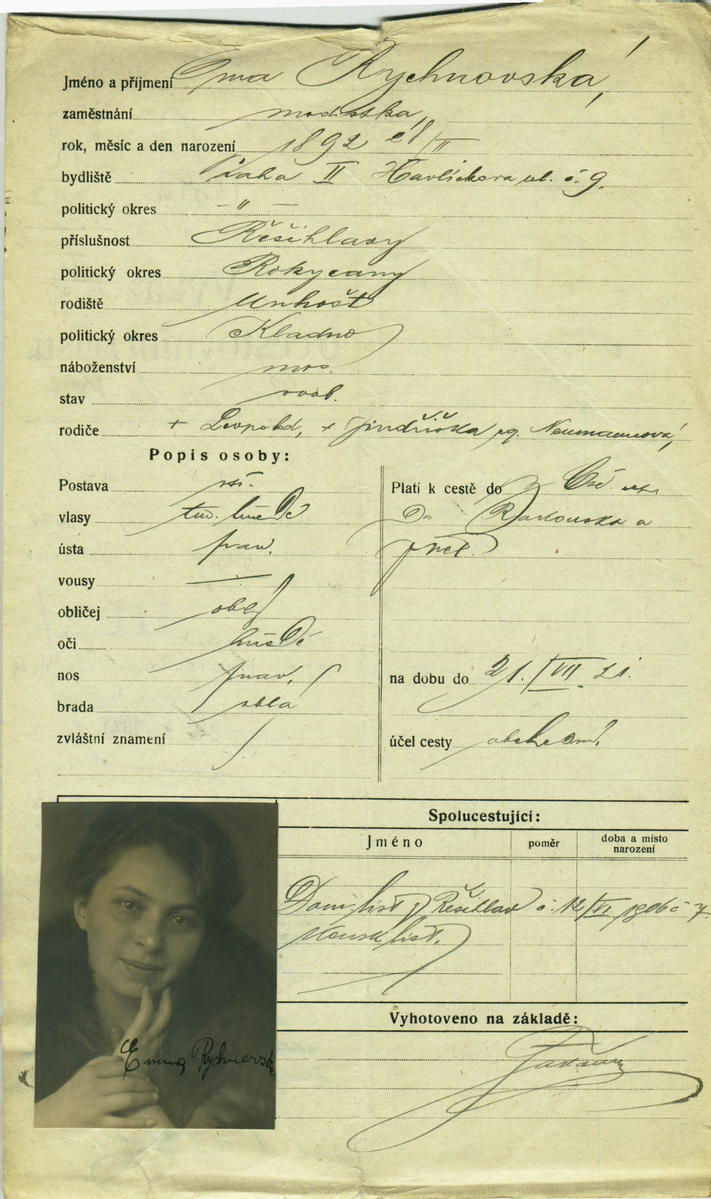 Jméno a příjmení Ema Rychnovská,
zaměstnání modistka,
rok, měsíc a den narození 1892 /II
bydliště Praha II Havlíčkova ul. č. 9.
politický okres — " —
příslušnost Řešihlavy
politický okres Rokycany
rodiště Unhošť
politický okres Kladno
náboženství mos.
stav svob.
rodiče + Leopold, + Jindřiška roz. Neumannová,
Popis osoby:
Postava stř.
vlasy tm. hnědé
ústa prav.
vousy —
obličej oblý
oči hnědé
nos prav.
brada oblá
zvláštní znamení
Platí k cestě do
do Rakouska a
zpět.
na dobu do 21./VII. 21.
účel cesty obchodní.
Spolucestující:
Jméno poměr doba a místo narození
Dom. list z Řešihlav č. /VI 1906 č 7.
list.
Vyhotoveno na základě:
Emma Rychnovská